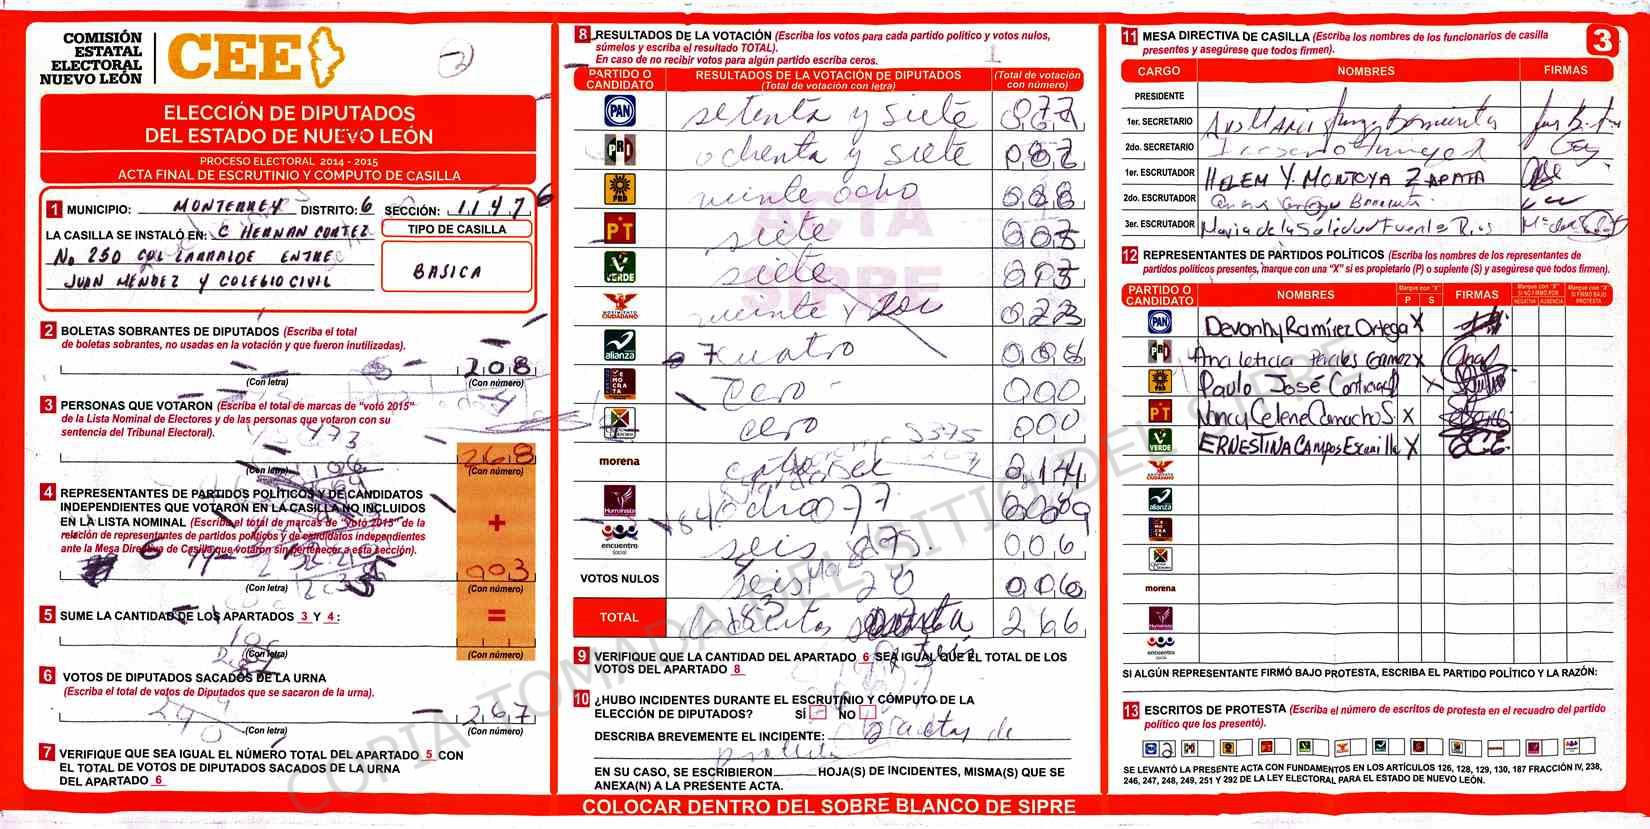 COMISIÓN
ESTATAL
ELECTORAL
NUEVO LEÓN
CEE
ELECCIÓN DE DIPUTADOS
DEL ESTADO DE NUEVO LEÓN
PROCESO ELECTORAL 2014 - 2015
ACTA FINAL DE ESCRUTINIO Y CÓMPUTO DE CASILLA
1 MUNICIPIO: MONTERREY DISTRITO: 6 SECCIÓN: 1147
LA CASILLA SE INSTALÓ EN: C HERNAN CORTEZ
No 250 COL LARRALDE ENTRE
JUAN MENDEZ Y COLEGIO CIVIL
TIPO DE CASILLA
BASICA
2 BOLETAS SOBRANTES DE DIPUTADOS (Escriba el total
de boletas sobrantes, no usadas en la votación y que fueron inutilizadas).
208
(Con letra) (Con número)
3 PERSONAS QUE VOTARON (Escriba el total de marcas de "votó 2015"
de la Lista Nominal de Electores y de las personas que votaron con su
sentencia del Tribunal Electoral).
268
(Con letra) (Con número)
4 REPRESENTANTES DE PARTIDOS POLÍTICOS Y DE CANDIDATOS
INDEPENDIENTES QUE VOTARON EN LA CASILLA NO INCLUIDOS
EN LA LISTA NOMINAL (Escriba el total de marcas de "votó 2015" de la
relación de representantes de partidos políticos y de candidatos independientes
ante la Mesa Directiva de Casilla que votaron sin pertenecer a esta sección).
+
003
(Con letra) (Con número)
5 SUME LA CANTIDAD DE LOS APARTADOS 3 Y 4:
=
(Con letra) (Con número)
6 VOTOS DE DIPUTADOS SACADOS DE LA URNA
(Escriba el total de votos de Diputados que se sacaron de la urna).
267
(Con letra) (Con número)
7 VERIFIQUE QUE SEA IGUAL EL NÚMERO TOTAL DEL APARTADO 5 CON
EL TOTAL DE VOTOS DE DIPUTADOS SACADOS DE LA URNA
DEL APARTADO 6
8 RESULTADOS DE LA VOTACIÓN (Escriba los votos para cada partido político y votos nulos,
súmelos y escriba el resultado TOTAL).
En caso de no recibir votos para algún partido escriba ceros.
PARTIDO O CANDIDATO
RESULTADOS DE LA VOTACIÓN DE DIPUTADOS
(Total de votación con letra)
(Total de votación con número)
PAN setenta y siete 077
PRI ochenta y siete 087
PRD veinte ocho 028
PT siete 007
VERDE siete
MOVIMIENTO CIUDADANO veinte y 023
alianza cuatro
cero 000
cero 000
morena
Humanista
encuentro social seis 006
VOTOS NULOS seis 006
TOTAL 266
9 VERIFIQUE QUE LA CANTIDAD DEL APARTADO 6 SEA IGUAL QUE EL TOTAL DE LOS
VOTOS DEL APARTADO 8
10 ¿HUBO INCIDENTES DURANTE EL ESCRUTINIO Y CÓMPUTO DE LA
ELECCIÓN DE DIPUTADOS? SÍ NO
DESCRIBA BREVEMENTE EL INCIDENTE: 2 actas de
EN SU CASO, SE ESCRIBIERON HOJA(S) DE INCIDENTES, MISMA(S) QUE SE
ANEXA(N) A LA PRESENTE ACTA.
COLOCAR DENTRO DEL SOBRE BLANCO DE SIPRE
3
11 MESA DIRECTIVA DE CASILLA (Escriba los nombres de los funcionarios de casilla
presentes y asegúrese que todos firmen).
CARGO NOMBRES FIRMAS
PRESIDENTE
1er. SECRETARIO
2do. SECRETARIO
1er. ESCRUTADOR HELEM Y. MONTOYA ZAPATA
2do. ESCRUTADOR
3er. ESCRUTADOR Maria de la Salud Fuentes Rios
12 REPRESENTANTES DE PARTIDOS POLÍTICOS (Escriba los nombres de los representantes de
partidos políticos presentes, marque con una "X" si es propietario (P) o suplente (S) y asegúrese que todos firmen).
PARTIDO O CANDIDATO
NOMBRES
Marque con "X"
P S
FIRMAS
Marque con "X" SI NO FIRMÓ POR NEGATIVA AUSENCIA
Marque con "X" SI FIRMÓ BAJO PROTESTA
PAN Devanhy Ramírez Ortega X
PRI Ana leticia X
PRD Paulo José X
PT Nancy Celene Camacho S X
VERDE ERNESTINA Campos X
MOVIMIENTO CIUDADANO
alianza
morena
Humanista
encuentro social
SI ALGÚN REPRESENTANTE FIRMÓ BAJO PROTESTA, ESCRIBA EL PARTIDO POLÍTICO Y LA RAZÓN:
13 ESCRITOS DE PROTESTA (Escriba el número de escritos de protesta en el recuadro del partido
político que los presentó).
2
SE LEVANTÓ LA PRESENTE ACTA CON FUNDAMENTOS EN LOS ARTÍCULOS 126, 128, 129, 130, 187 FRACCIÓN IV, 238,
246, 247, 248, 249, 251 Y 292 DE LA LEY ELECTORAL PARA EL ESTADO DE NUEVO LEÓN.
ACTA
SIPRE
COPIA TOMADA DEL SITIO DEL SIPRE